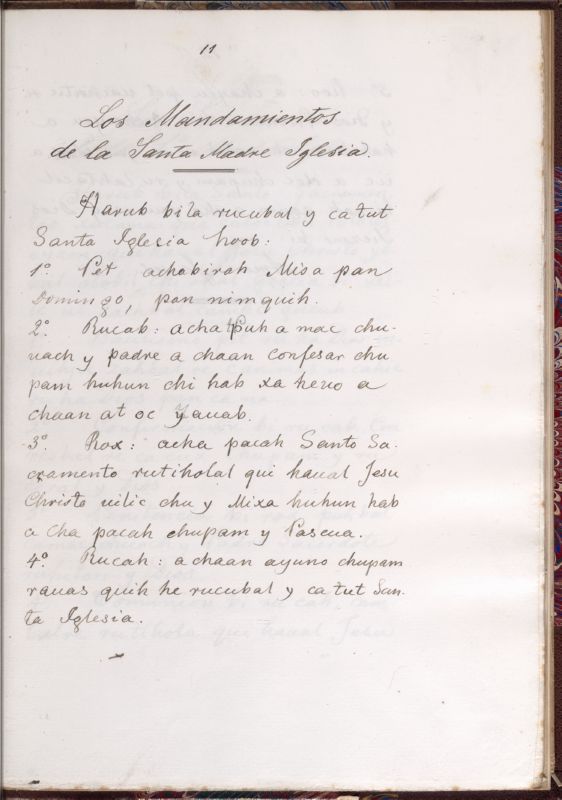 11
Los Mandamientos
de la Santa Madre Iglesia.
Harub bila rucubal y catut
Santa Iglesia hoob:
1º. Pet achabirah Misa pan
Domingo, pan nimquih.
2º. Rucab: acha puh a mac chu-
uach y padre a chaan confesar chu
pam huhun chi hab xa hero a
chaan at oc yauab.
3º. Rox: acha pacah Santo Sa-
cramento rutiholal qui haual Jesu
Christo uilic chu y Mixa huhun hab
a cha pacah chupam y Pascua.
4º. Rucah: a chaan ayuno chupam
rauas quih he rucubal y catut San-
ta Iglesia.